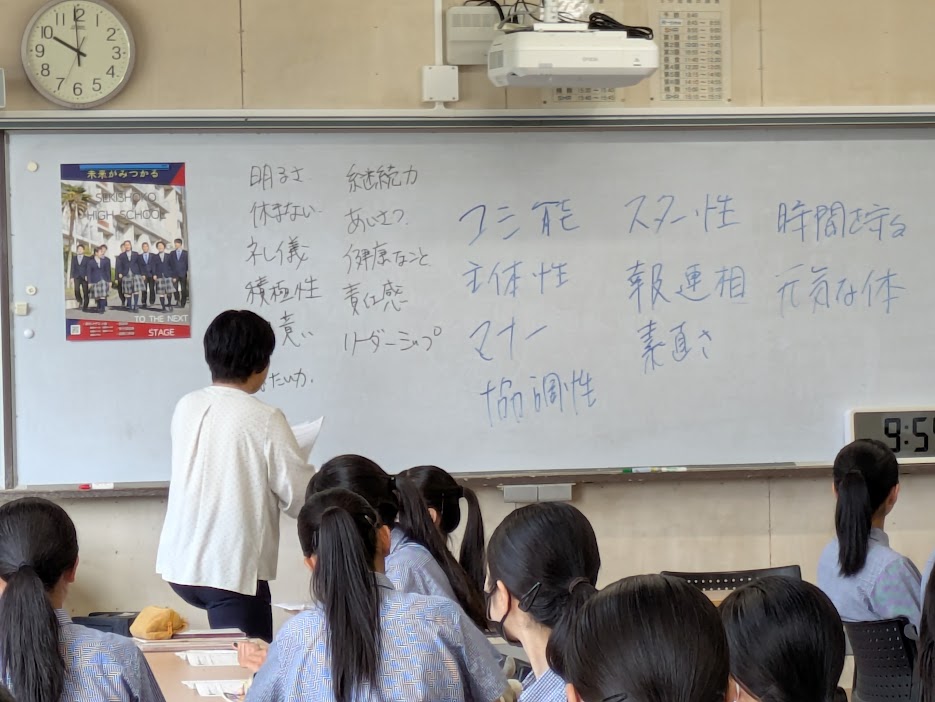 未来がみつかる
SEKISHOKO
HIGH SCHOOL
TO THE NEXT
STAGE
明るさ
休まない
礼儀
積極性
責い
たい力.
継続力
あいさつ.
健康なこと
責任感
リーダーシップ
コミ能
主体性
マナー
協調性
スター性
報連相
素直さ
時間を守る
元気な体
EPSON
12
1
2
3
4
5
6
7
8
9
10
11
9:5